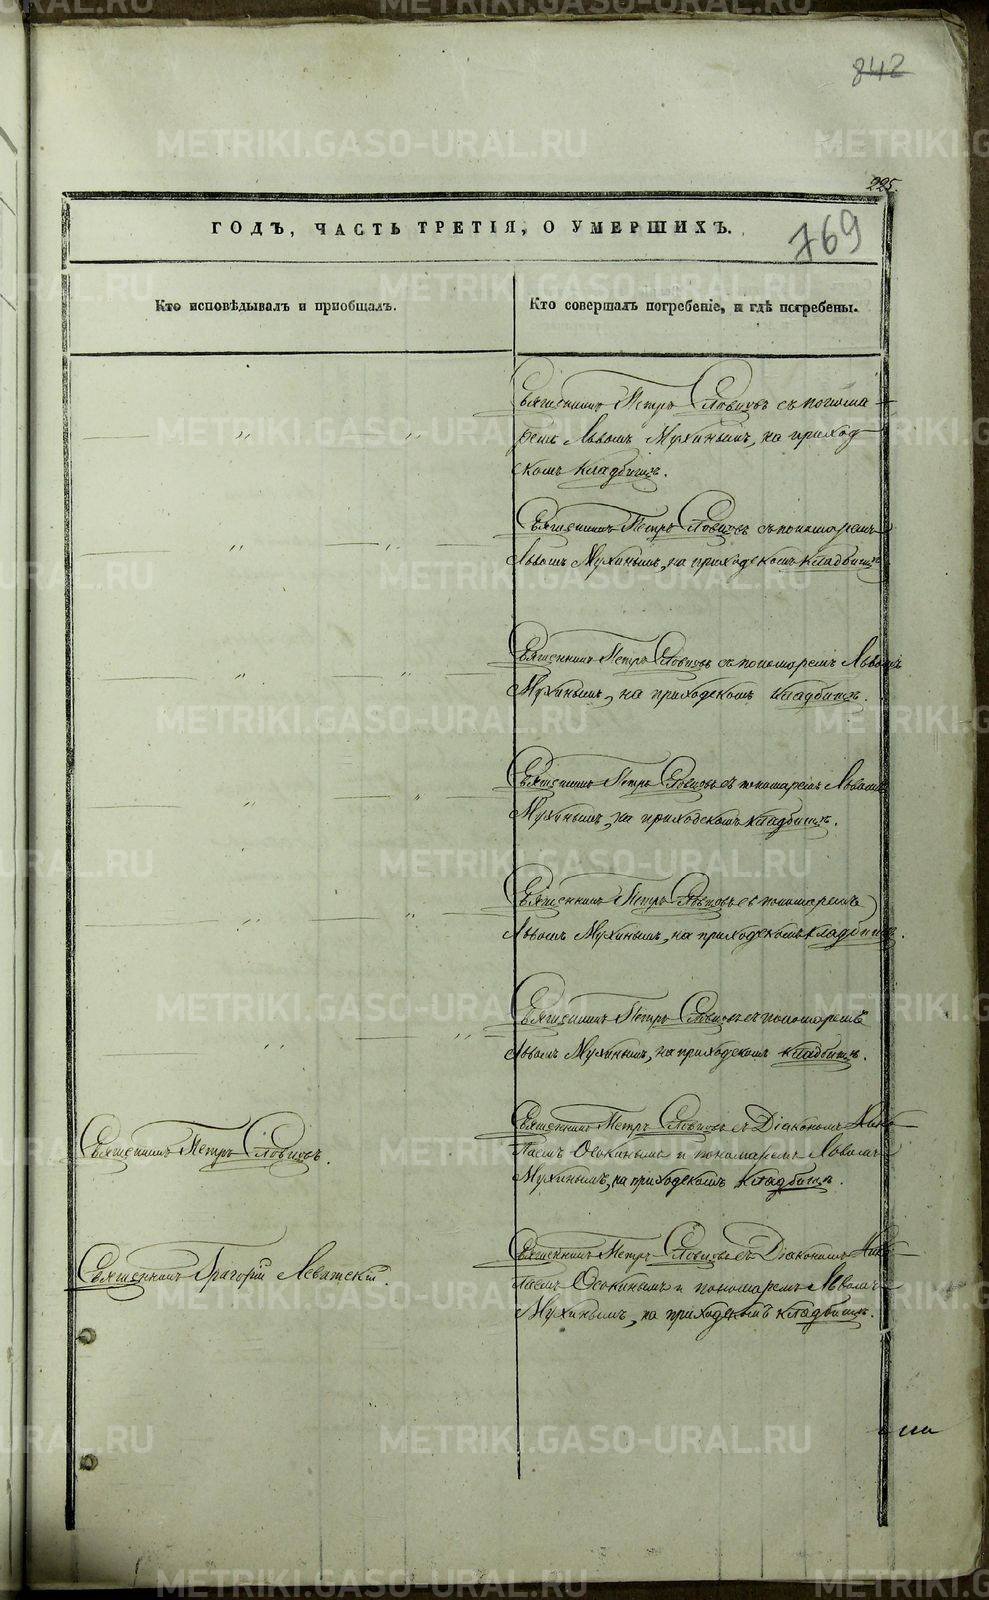 842
225.
ГОДЪ, ЧАСТЬ ТРЕТІЯ, О УМЕРШИХЪ.
769
Кто исповѣдывалъ и приобщалъ.
Кто совершалъ погребеніе, и гдѣ погребены.
Священникъ Петръ Словцовъ съ понома-
ремъ Львомъ Мухинымъ, на приход-
скомъ кладбищѣ.
Священникъ Петръ Словцовъ съ пономаремъ
Львомъ Мухинымъ, на приходскомъ кладбищѣ
Священникъ Петръ Словцовъ съ пономаремъ Львомъ
Мухинымъ, на приходскомъ кладбищѣ.
Священникъ Петръ Словцовъ съ пономаремъ Львомъ
Мухинымъ, на приходскомъ кладбищѣ.
Священникъ Петръ Словцовъ съ пономаремъ
Львомъ Мухинымъ, на приходскомъ кладбищѣ.
Священникъ Петръ Словцовъ съ пономаремъ
Львомъ Мухинымъ, на приходскомъ кладбищѣ.
Священникъ Петръ Словцовъ.
Священникъ Петръ Словцовъ съ Діакономъ Нико-
лаемъ Осокинымъ и пономаремъ Львомъ
Мухинымъ, на приходскомъ кладбищѣ.
Священникъ Григорій Леватскій.
Священникъ Петръ Словцовъ съ Діакономъ Нико-
лаемъ Осокинымъ и пономаремъ Львомъ
Мухинымъ, на приходскомъ кладбищѣ.
METRIKI.GASO-URAL.RU